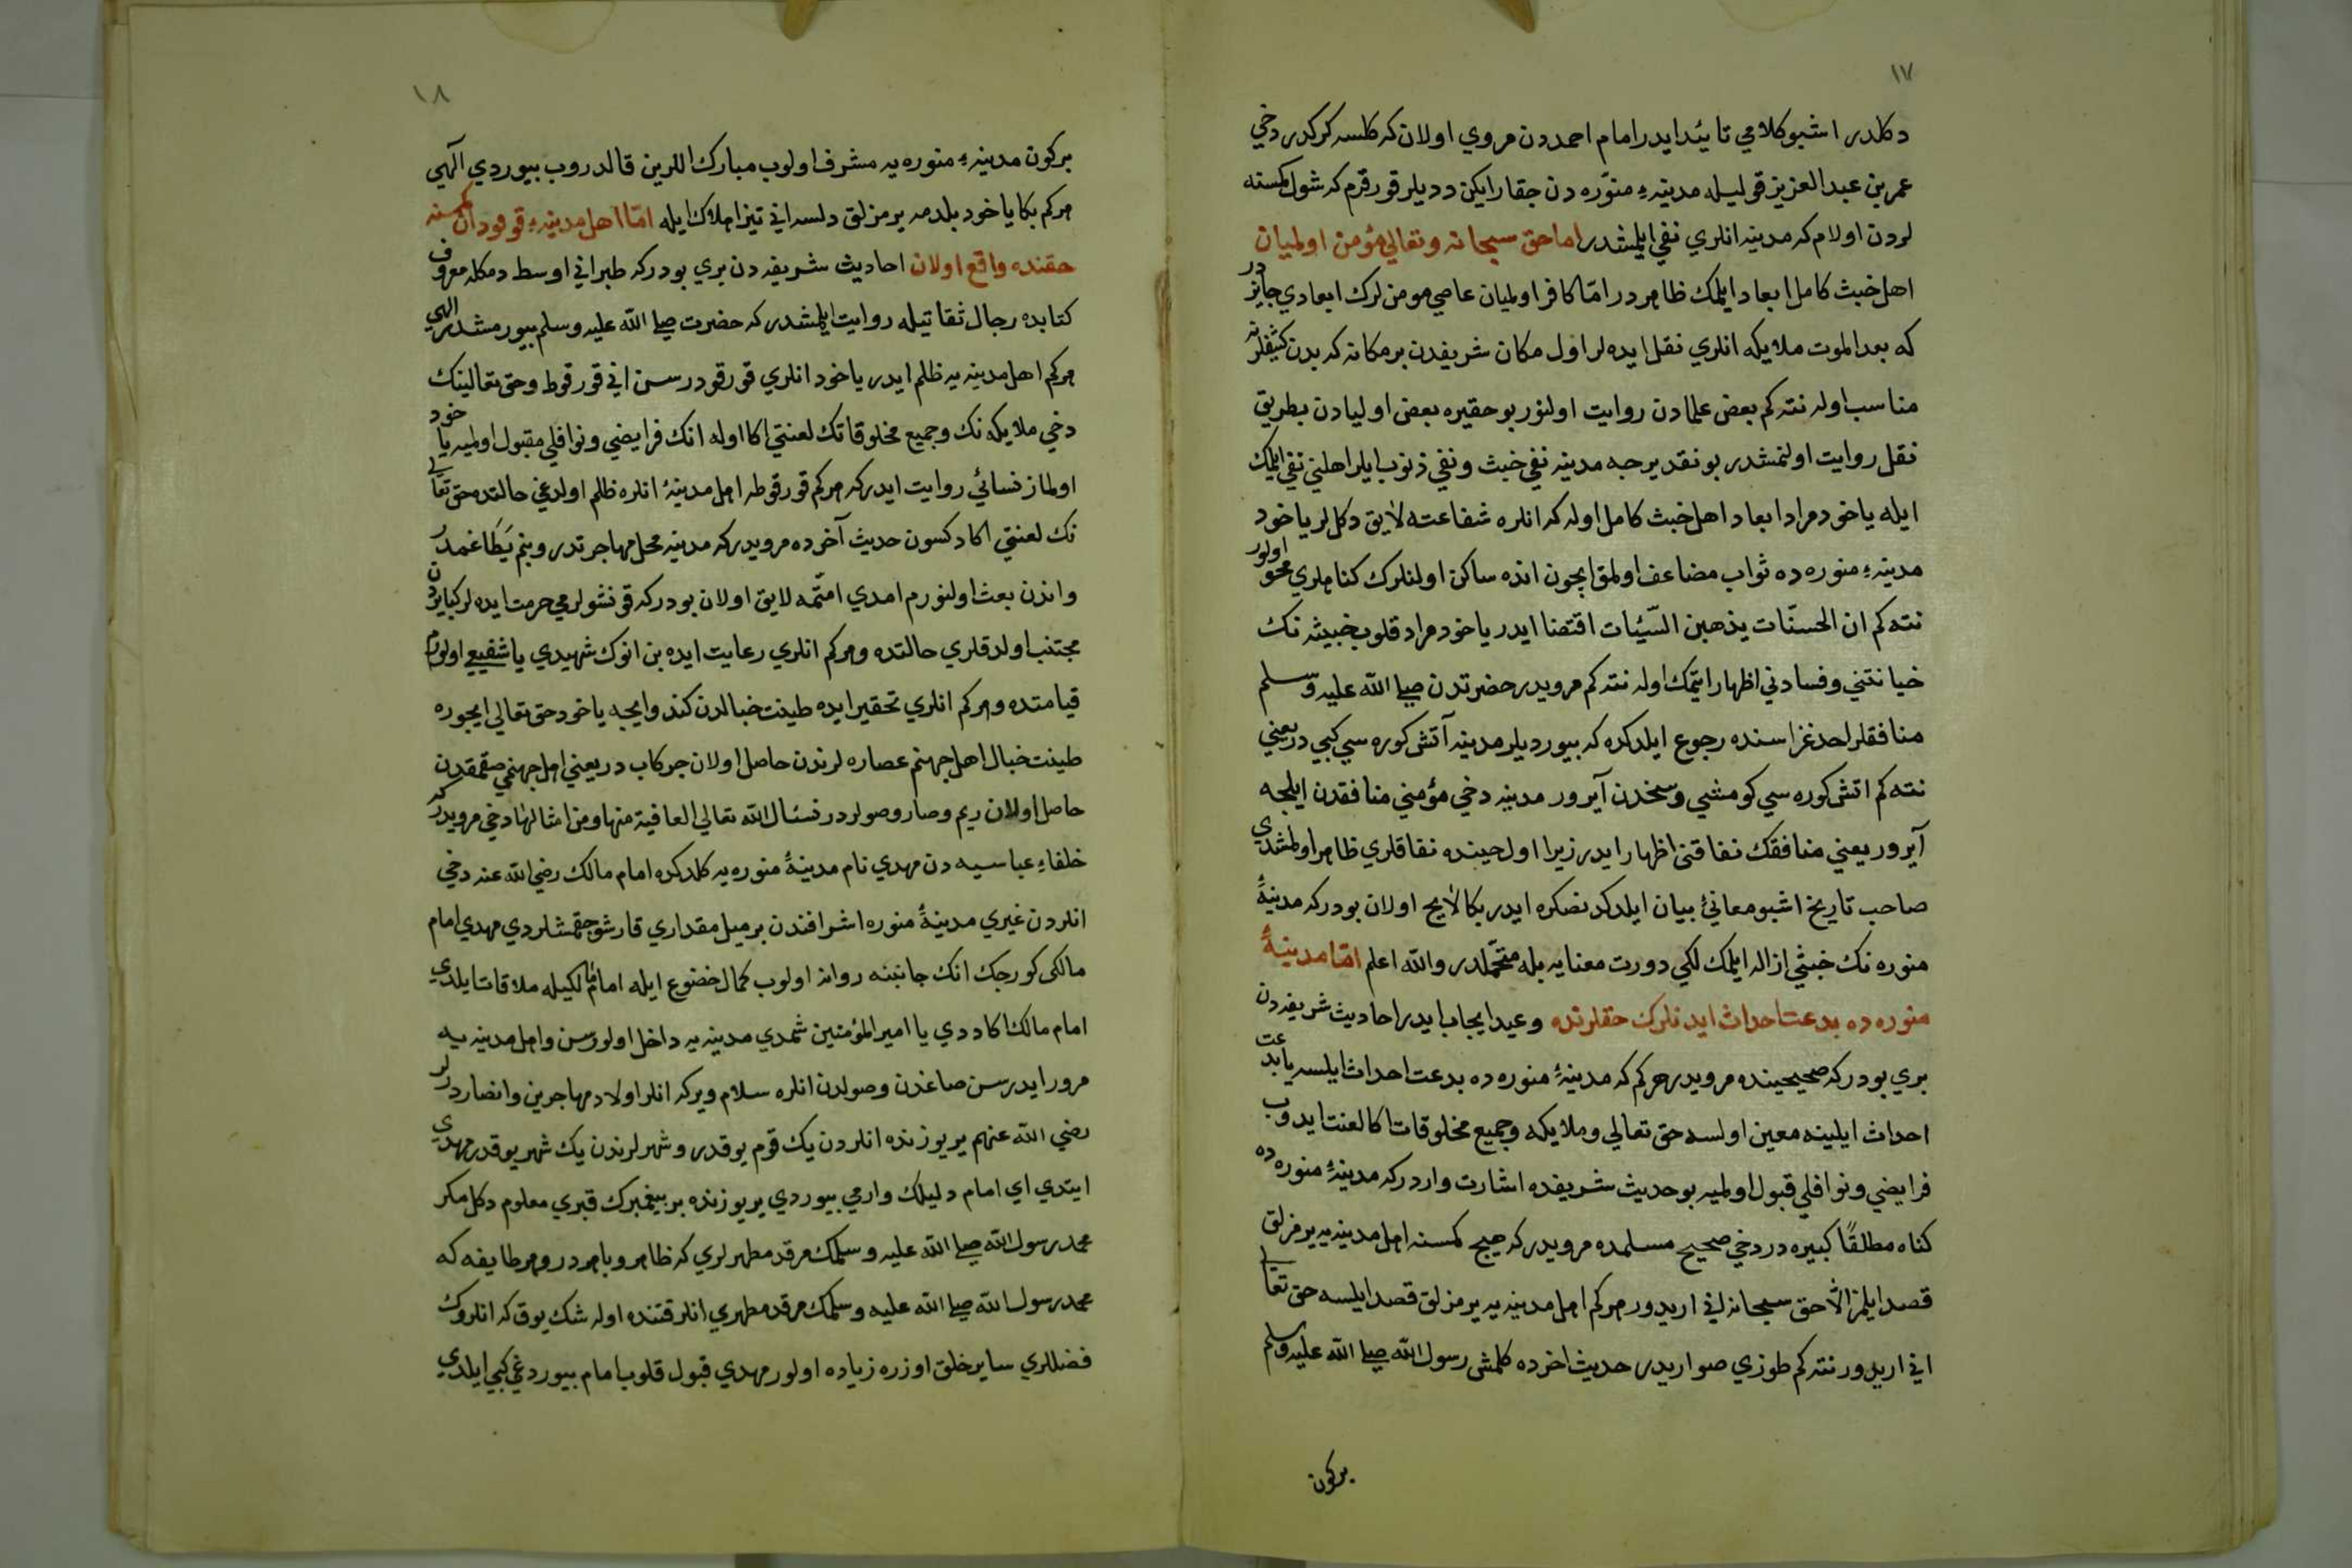 ١٧
دكلدر اشبو كلامي تائيد ايدر امام احمددن مروي اولان كه كلسه كركدر دخي
عمر بن عبد العزيز قوليله مدينهء منوّره دن جقارايكن دديلر قورقرم كه شول كمسنه
لردن اولام كه مدينه انلري نفي ايلمشدر اما حق سبحانه وتعالي مؤمن اولميان
اهل خبث كامل ابعاد ايلمك ظاهردر امّا كافر اولميان عاصي مومن لرك ابعادي جايزدر
كه بعد الموت ملايكه انلري نقل ايده لر اول مكان شريفدن بر مكانه كه بدن كثيفلرنه
مناسب اوله نته كم بعض علمادن روايت اولنور بو حقيره بعض اوليادن بطريق
نقل روايت اولنمشدر بو نقديرجه مدينه نفي خبث ونفي ذنوب ايلر اهلني نفي ايلمك
ايله ياخود مراد ابعاد اهل خبث كامل اوله كه انلره شفاعته لايق دكللر ياخود
مدينهء منوره ده ثواب مضاعف اولمق ايچون انده ساكن اولنلرك كناهلري محو اولور
نته كم ان الحسنات يذهبن السّيّات اقتضا ايدر ياخود مراد قلوب خبيثه نك
خيانتني وفسادني اظهار ايتمك اوله نته كم مرويدر حضرتدن صلى الله عليه وسلم
منافقلر احد غزاسنده رجوع ايلدكده كه بيورديلر مدينه آتش كوره سي كبي در يعني
نته كم اتش كوره سي كومشي وسخدن آيرور مدينه دخي مؤمني منافقدن ايلجه
آيرور يعني منافقك نفاقني اظهار ايدر زيرا اول حينده نفاقلري ظاهر اولمشدي
صاحب تاريخ اشبو معانيء بيان ايلدكدنصكره ايدر بكا لايح اولان بودركه مدينهء
منوره نك خبثي ازاله ايلمك لكي دورت معنايه بله متحمّلدر والله اعلم امّا مدينهء
منوره ده بدعت احداث ايدنلرك حقلرنده وعيد ايجاب ايدر احاديث شريفه دن
بري بودركه صحيحينده مرويدر هركم كه مدينهء منوره ده بدعت احداث ايلسه يا بدعت
احداث ايلينه معين اولسه حق تعالي وملايكه وجميع مخلوقات اكا لعنت ايدوب
فرايضي ونوافلي قبول اولميه بو حديث شريفده اشارت واردركه مدينهء منوره ده
كناه مطلقًا كبيره در دخي صحيح مسلمده مرويدركه هيچ كمسنه اهل مدينه يه يرمزلق
قصد ايلمز الّا حق سبحانه اني اريدور هركم اهل مدينه يه يرمزلق قصد ايلسه حق تعالى
اني اريدور نته كم طوزي صو اريدر حديث اخرده كلمشي رسول الله صلى الله عليه وسلم
بركون
١٨
بركون مدينهء منوره يه مشرف اولوب مبارك اللرين قالدروب بيوردي آلهي
هركم بكا ياخود بلدمه يرمزلق دلسه اني تيز هلاك ايله امّا اهل مدينهء قورقودان كمسنه
حقنده واقع اولان احاديث شريفه دن بري بودركه طبراني اوسط دمكله معروف
كتابده رجال ثقاتيله روايت ايلمشدركه حضرت صلى الله عليه وسلم بيورمشدر الهي
هركم اهل مدينه يه ظلم ايدر ياخود انلري قورقودرسن اني قورقوط وحق تعالينك
دخي ملايكه نك وجميع مخلوقاتك لعنتي اكا اوله انك فرايضي ونوافلي مقبول اولميه ياخود
اولماز نسائي روايت ايدركه هركم قورقوطه اهل مدينهء انلره ظلم اولدغي حالتده حق تعالى
نك لعنتي اكا دكسون حديث آخرده مرويدركه مدينه محل مهاجرتدر وبنم يتاغمدر
واندن بعث اولنورم امدي امتمه لايق اولان بودركه قونشولرمي حرمت ايده لر كبايردن
مجتنب اولدقلري حالتده وهركم انلري رعايت ايده بن انوك شهيدي يا شفيعي اولورم
قيامتده وهركم انلري تحقير ايده طينت خبالدن كندو ايچه ياخود حق تعالي ايچوره
طينت خبال اهل جهنم عصاره لرندن حاصل اولان جركاب در يعني اهل جهنمي صقمقدن
حاصل اولان ريم وصارو صولردر نسئال الله تعالي العافية منها ومن امثالها دخي مرويدركه
خلفاء عباسيه دن مهدي نام مدينهء منوره يه كلدكده امام مالك رضي الله عنه دخي
انلردن غيري مدينهء منوره اشرافندن بر ميل مقداري قارشو جقمشلردي مهدي امام
مالكي كورجك انك جانبنه روانه اولوب كمال خضوع ايله امام مالكيله ملاقات ايلدي
امام مالك اكا ددي يا امير المؤمنين شمدي مدينه يه داخل اولورسن واهل مدينه يه
مرور ايدرسن صاغدن وصولدن انلره سلام ويركه انلر اولاد مهاجرين وانصاردرلر
رضي الله عنهم ير يوزنده انلردن يك قوم يوقدر وشهرلرندن يك شهر يوقدر مهدي
ايتدي اي امام دليلك وارمي بيوردي ير يوزنده بر بيغمبرك قبري معلوم دكل مكر
محمد رسول الله صلى الله عليه وسلمك مرقد مطهرلري كه ظاهر وباهردر وهر طايفه كه
محمد رسول الله صلى الله عليه وسلمك مرقد مطهري انلر قتنده اوله شك يوق كه انلروك
فضللري ساير خلق اوزره زياده اولور مهدي قبول قلوب امام بيوردغي كبي ايلدي